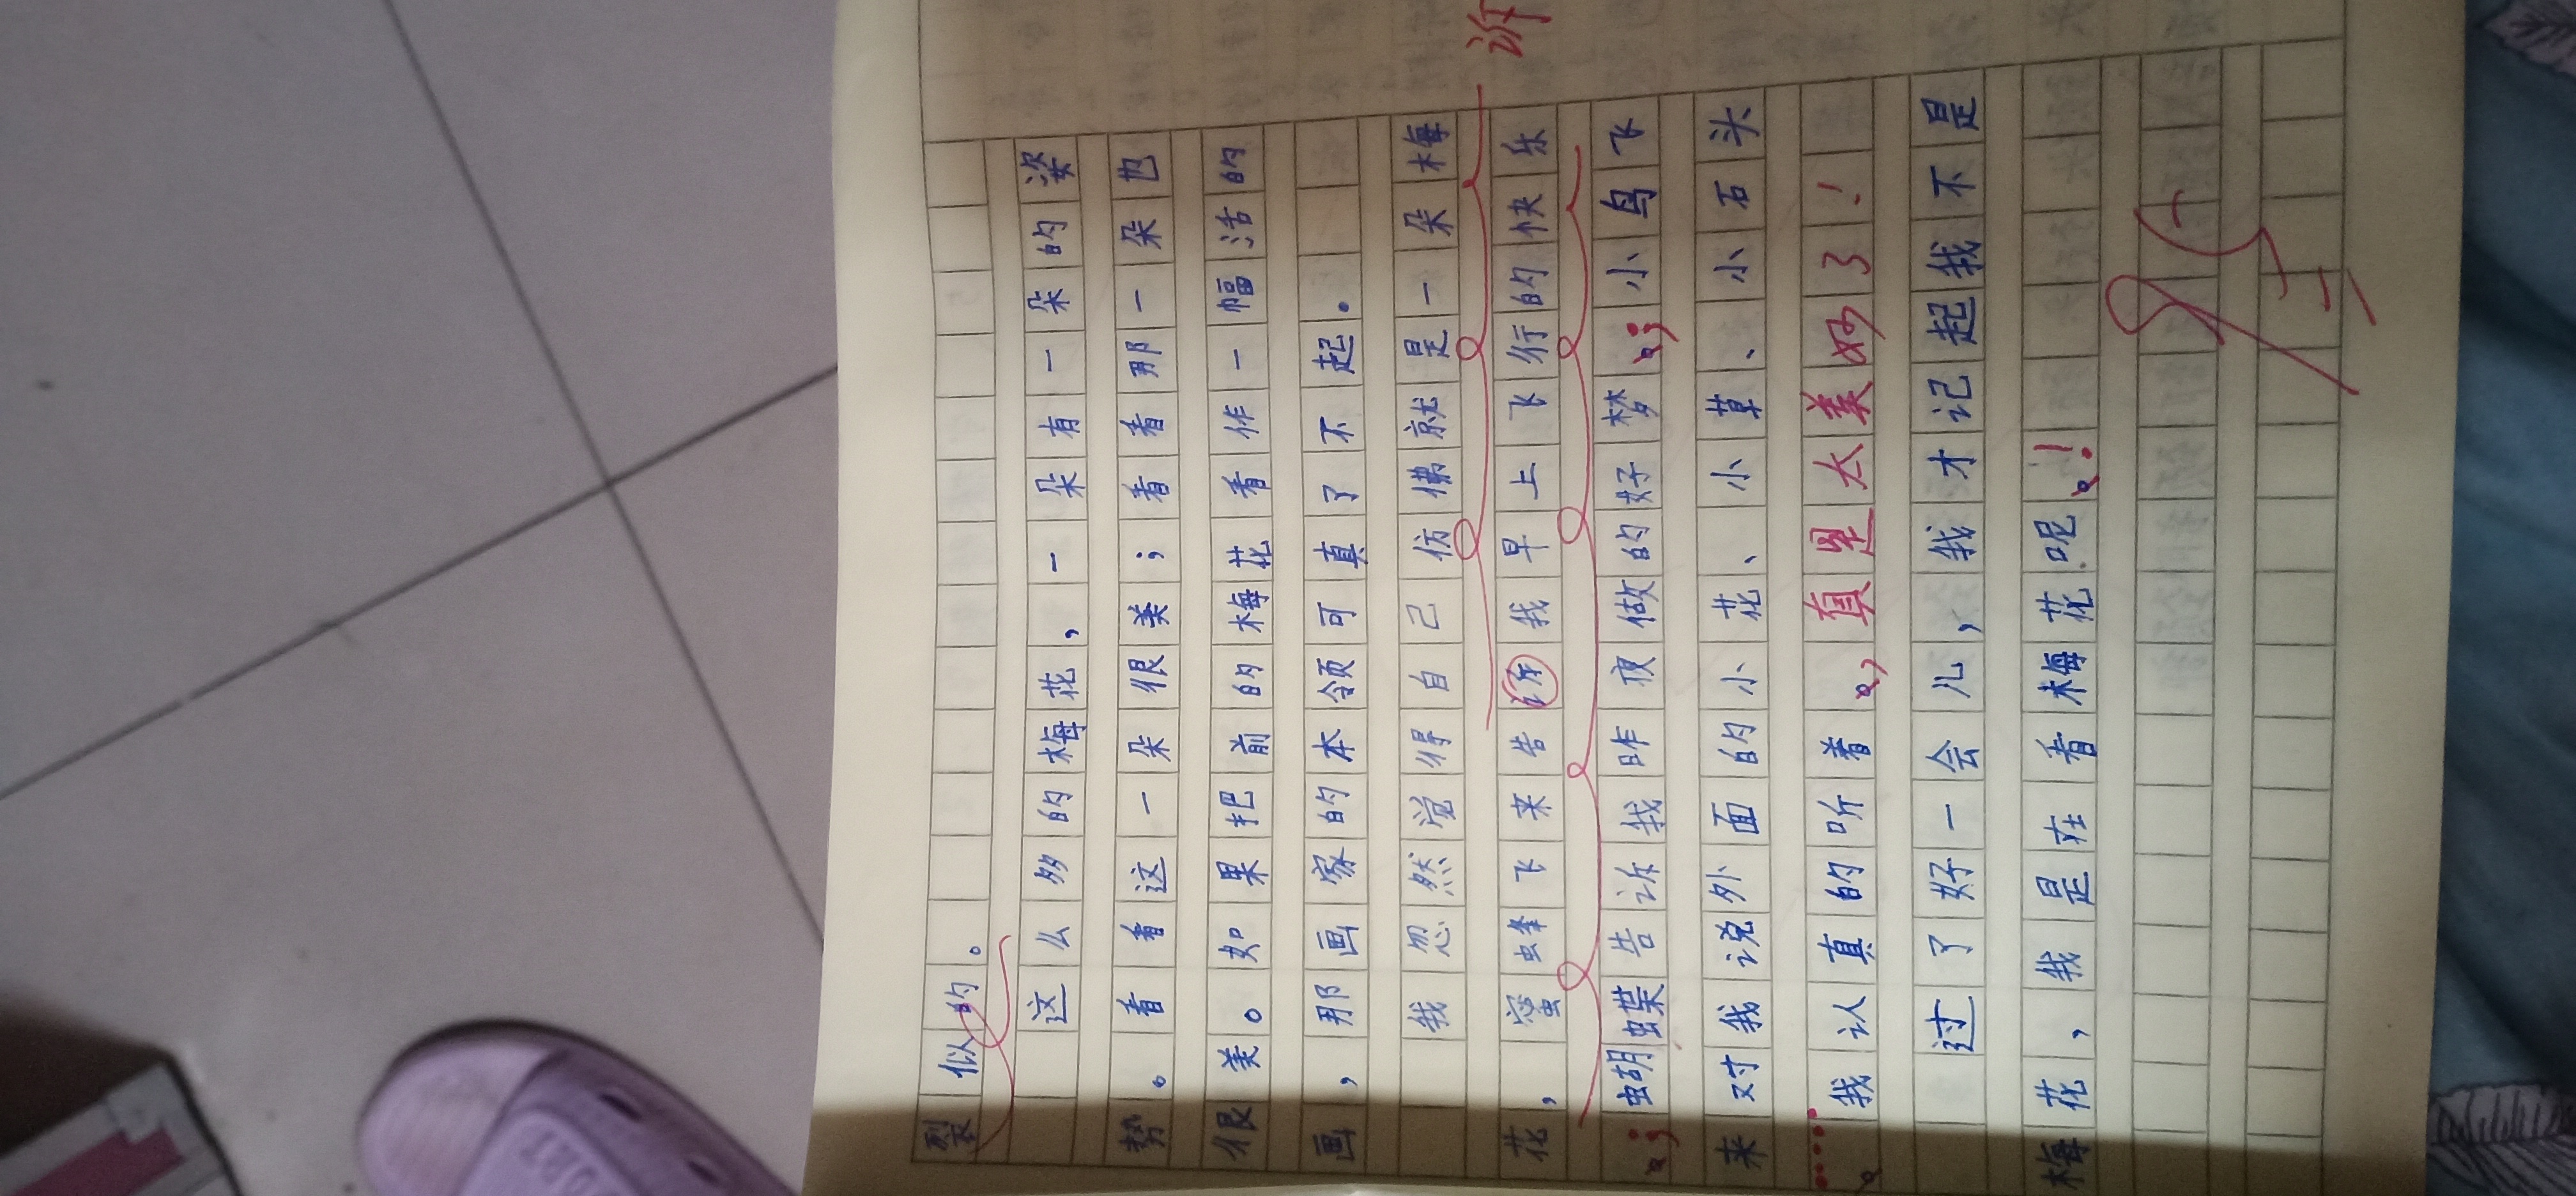 裂似的。
这么多的梅花，一朵有一朵的姿
势。看看这一朵很美；看看那一朵也
很美。如果把前的梅花看作一幅活的
画，那画家的本领可真了不起。
我忽然觉得自己仿佛就是一朵梅
诉
花，蜜蜂飞来告诉我早上飞行的快乐
。；蝴蝶告诉我昨夜做的好梦。；小鸟飞
来对我说外面的小花、小草、小石头
。……我认真的听着。，真是太美妙了！
过了好一会儿，我才记起我不是
梅花，我是在看梅花呢。！